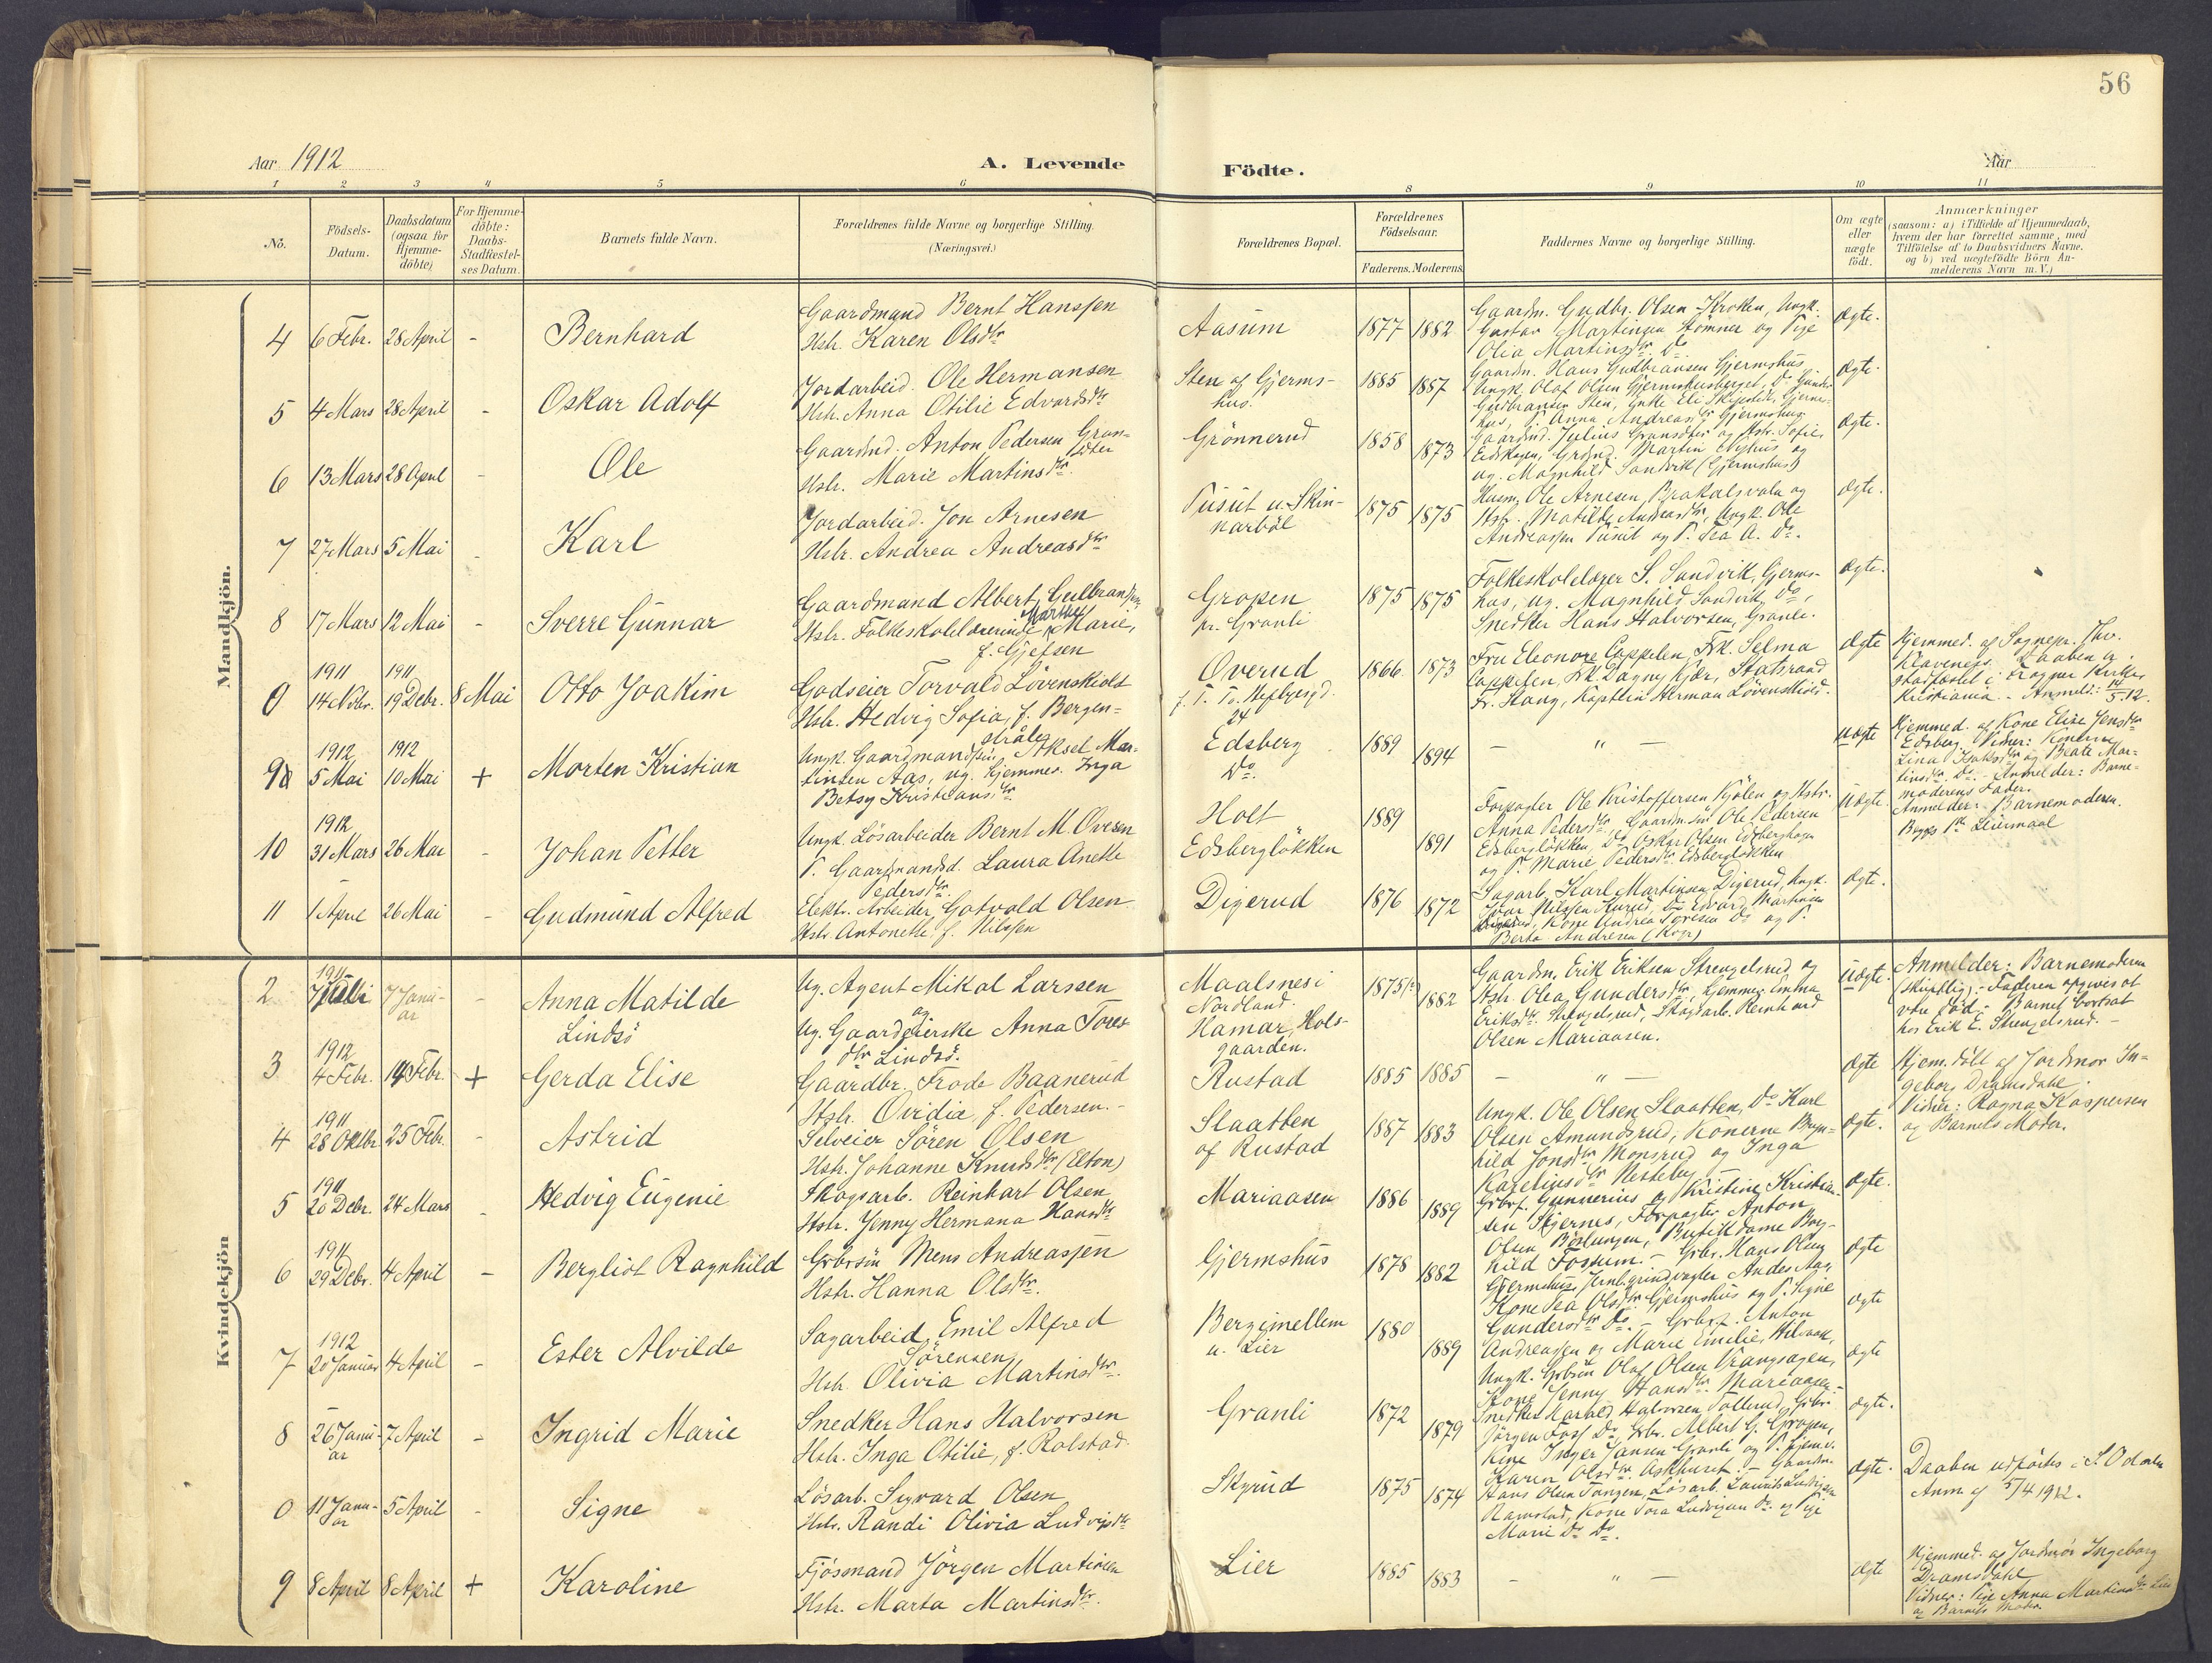 56
Aar 1912
A. Levende Födte.
Aar
1 2 3 4 5 6 8 9 10 11
No.
Födsels-Datum.
Daabsdatum (ogsaa for Hjemme-döbte)
For Hjemme-döbte: Daabs-Stadfæstel-ses Datum.
Barnets fulde Navn.
Forældrenes fulde Navne og borgerlige Stilling. (Næringsvei.)
Forældrenes Bopæl.
Forældrenes Födselsaar.
Faderens. Moderens.
Faddernes Navne og borgerlige Stilling.
Om ægte eller uægte födt.
Anmærkninger
(saasom: a) i Tilfælde af Hjemmedaab,
hvem der har forrettet samme, med
Tilföielse af to Daabsvidners Navne.
og b) ved uægtefödte Börn An-
melderens Navn m.V.)
Mandkjön.
4 6 Febr. 28 April - Bernhard
Gaardmand Bernt Hanssen
Hstr. Karen Olsdtr
Aasum 1877 1882
Gaardm. Gudbr. Olsen Kroken, Ungk.
Gustav Martinsen Stömner og Pige
Olia Martinsdtr Do.
Ægte.
5 4 Mars 28 April - Oskar Adolf
Jordarbeid. Ole Hermansen
Hstr. Anna Otilie Edvardsdtr
Sten af Gjerms-
hus. 1885 1887
Gaardm. Hans Gudbransen Gjermshus
Ungk. Olaf Olsen Gjermshusberget, Do
Gudbransen Sten, Enke Eli
hus, P. Anna Andreasdtr Gjermshus
Ægte.
6 13 Mars 28 April - Ole
Gaardmd. Anton Pedersen Gran-
Hstr. Marie Martinsdtr
Grönnerud 1858 1873
Gaardmd. Julius og Hstr. Sofie
Eidskogen, Grdmd. Martin Nyhus og
ug. Magnhild Sandvik (Gjermshus)
Ægte.
7 27 Mars 5 Mai - Karl
Jordarbeid. Jon Arnesen
Hstr. Andrea Andreasdtr
Pusut u. Skin-
narböl 1875 1875
Husm. Ole Arnesen, og
Hstr. Matilde Andreasdtr, Ungk. Ole
Andreassen Pusut og P. Tea A. Do.
Ægte.
8 17 Mars 12 Mai - Sverre Gunnar
Gaardmand Albert Gulbransen
Hstr. Folkeskolelærerinde Marthe Marie,
f. Gjefsen
Gropen
pr. Granli 1875 1875
Folkeskolelærer S. Sandvik, Gjerms-
hus, ug. Magnhild Sandvik Do,
Snedker Hans Halvorsen, Granli.
Ægte.
0 1911 14 Novbr. 1911 19 Debr. 8 Mai Otto Joakim
Godseier Torvald Lövenskiold
Hstr. Hedvig Sofia, f. Bergen-
stråle
Overud 1866 1873
Fru Eleonore Cappelen, Frk. Selma
Cappelen, Frk. Dagny Kjær, Statsraad
Fr. Stang, Kaptein Herman Lövenskiold.
Ægte
Hjemmed. af Sognepr. Thv.
Klaveness. Daaben er
stadfæstet i Frogner Kirke,
Kristiania. - Anmeld: 14/5.12.
9 1912 5 Mai 1912 10 Mai + Morten Kristian
Ungk. Gaardmandssön Aksel Mar-
tinsen Aas, ug. Hjemmev. Inga
Betsy Kristiansdtr
Edsberg
Do. 1889 1894 - " -
Uægte
Hjemmed. af Kone Elise Jensdtr
Edsberg. Vidner: Konerne
Lina Isaksdtr og Beate Mar-
tinsdtr Do. - Anmelder: Barne-
moderens Fader.
10 1912 31 Mars 26 Mai - Johan Petter
Ungk. Lösarbeider Bernt M. Ovesen
P. Gaardmandsd. Laura Anette
Pedersdtr
Holt
Edsberglökken 1889 1891
Forpagter Ole Kristoffersen Kjölen og Hstr.
Anna Pedersdtr, Gaardm.sön Ole Pedersen
Edsberglökken, Do Oskar Olsen Edsberghagen
og P. Marie Pedersdtr Edsberglökken
Uægte.
Anmelder: Barnemoderen.
Begges 1ste Leiermaal
11 1 April 26 Mai - Gudmund Alfred
Elektr. Arbeider Gotvald Olsen
Hstr. Antonette f. Nilssen
Digerud 1876 1872
Sagarb. Karl Martinsen Digerud, Ungk.
Ivar Nilssen Do Edvard Martinsen
Digerud, Kone Andrea Do og P.
Berta Andresen
Ægte.
Kvindekjön
2 1911 7 Juli 7 Janu-
ar - Anna Matilde
Lindsö
Ug. Agent Mikal Larssen
og
Ug. Gaardeierske Anna Tores-
dtr Lindsö.
Maalsnes i
Nordland.
Hamar, Hols-
gaarden. 1875 1882
Gaardm. Erik Eriksen Strengelsrud og
Hstr. Olea Gundersdtr, Hjemmev. Emma
Eriksdtr Strengelsrud, Skogsarb. Reinhard
Olsen Mariaasen.
Uægte.
Anmelder: Barnemoderen
(skriftlig). - Faderen opgives at
være död. - Barnet bortsat
hos Erik E. Strengelsrud. -
3 1912 4 Febr. 14 Febr. + Gerda Elise
Gaardbr. Frode Baanerud
Hstr. Ovidia, f. Pedersen. -
Rustad 1885 1885 - " -
Ægte
Hjem.döbt af Jordmor In-
geborg Dramsdahl.
Vidner: Ragna Kaspersen
og Barnets Moder.
4 1911 28 Oktbr. 25 Febr. - Astrid
Selveier Sören Olsen
Hstr. Johanne Knudsdtr (Elton)
Slaatten
af Rustad 1887 1883
Ungk. Ole Olsen Slaatten, Do Karl
Olsen Amundsrud, Konerne Bryn-
hild Jonsdtr Monsrud og Inga
Kareliusdtr Nesteby
Ægte.
5 1911 20 Debr. 24 Mars - Hedvig Eugenie
Skogsarb. Reinhart Olsen
Hstr. Jenny Hermana Hansdtr
Mariaasen 1886 1889
Grbrf. Gunnerius og Kristine Kristian-
sen Skjernes, Forpagter Anton
Olsen Börlungen, Butikdame Borg-
hild Fossum. -
Ægte.
6 1911 29 Debr. 4 April - Bergliot Ragnhild
Grbrsön Mens Andreassen
Hstr. Hanna Olsdtr.
Gjermshus 1878 1882
Grbr. Hans Olsen
Gjermshus, Jernb.grindvogter Andes Aas,
Kone Tea Olsdtr Gjermshus og P. Signe
Gundersdtr Do. -
Ægte
7 1912 20 Januar 4 April - Ester Alvilde
Sagarbeid. Emil Alfred
Sörensen
Hstr. Olivia Martinsdtr.
Bergimellem
u. Lier 1880 1889
Grbr.f. Anton
Andreassen og Marie Emilie,
Ungk. Grbrsön Olaf Olsen Vrangsagen,
Kone Jenny Hansdtr Mariaasen. -
Ægte
8 26 Janu-
ar 7 April - Ingrid Marie
Snedker Hans Halvorsen
Hstr. Inga Otilie, f. Rolstad.
Granli 1872 1879
Snedker Harald Halvorsen Tollerud, Grbr.
Jörgen Foss Do, Grbr. Albert G. Gropen,
Kone Inger Jansen Granli og P. Hjemv.
Karen Olsdtr Askhurst. -
Ægte.
0 11 Janu-
ar 5 April - Signe
Lösarb. Sigvard Olsen
Hstr. Randi Olivia Ludvigsdtr
Skyrud 1875 1874
Gaardm.
Hans Olsen Tangen, Lösarb. Laurits Ludvigsen
Ramstad, Kone Tora Ludvigsen Do og Pige
Marie Do Do.
Ægte.
Daaben udfördes i S. Odalen
Anm. af 5/4 1912.
9 8 April 8 April + Karoline
Fjösmand Jörgen Martinsen
Hstr. Marta Martinsdtr.
Lier 1885 1883 - " -
Ægte
Hjemmed. af Jordmor Ingeborg
Dramsdahl
Vidner: Pige Anna Martinsdtr Lier
og Barnets Moder.